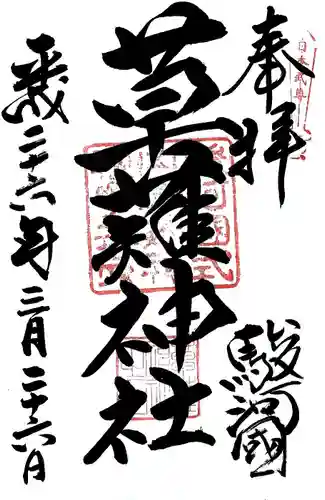 日本武尊
奉拝
駿河国
草薙神社
平成二十六年三月二十六日